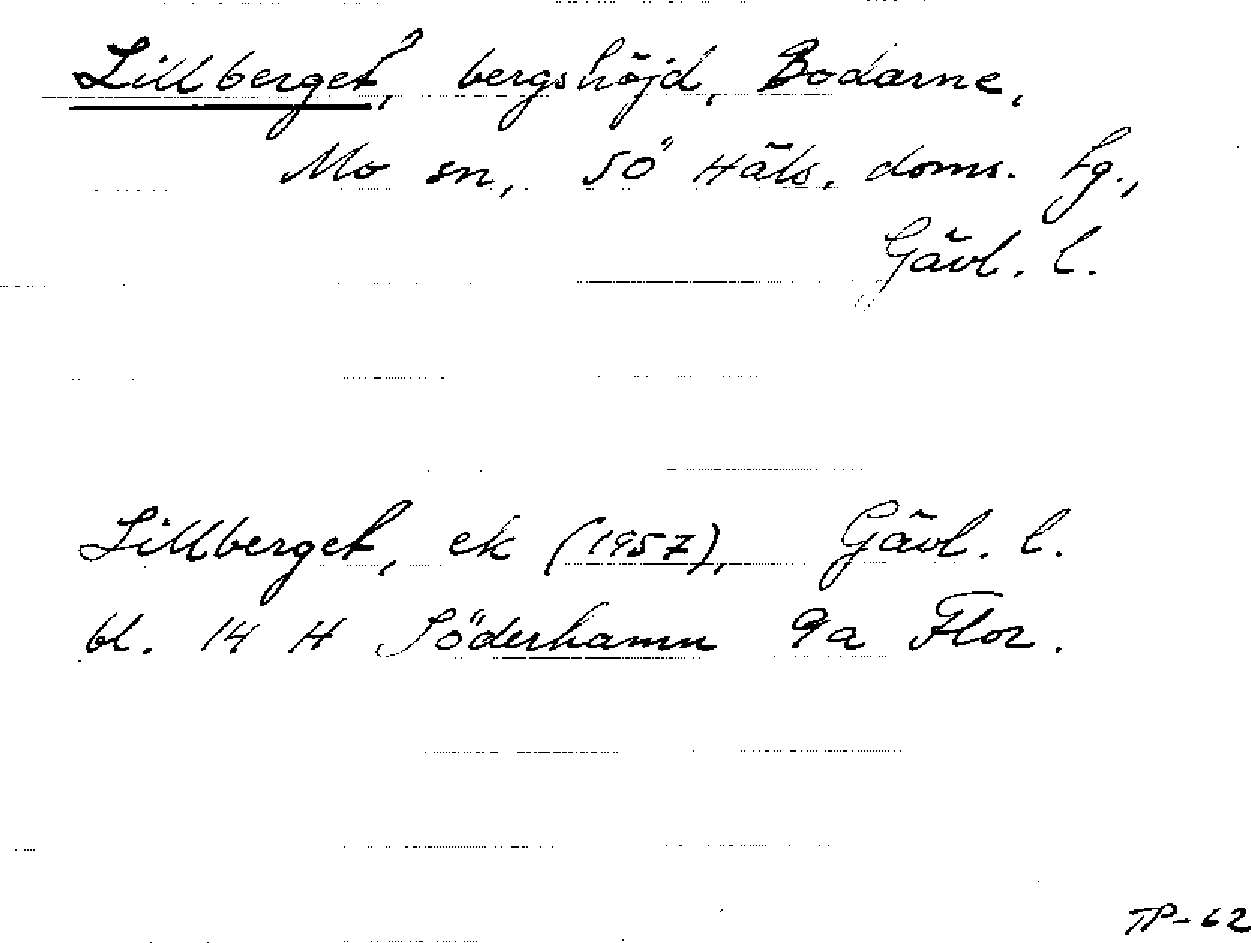 Lillberget, bergshöjd, Bodarne,
Mo sn, SÖ Häls. doms. tg.,
Gävl. l.
Lillberget, ek (1957), Gävl. l.
bl. 14 H Söderhamn 9a Flor.
TP-62